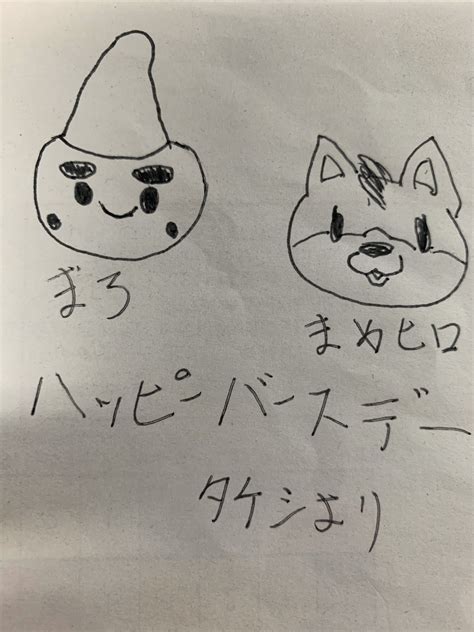 ぎろ
まめヒロ
ハッピーバースデー
タケシより